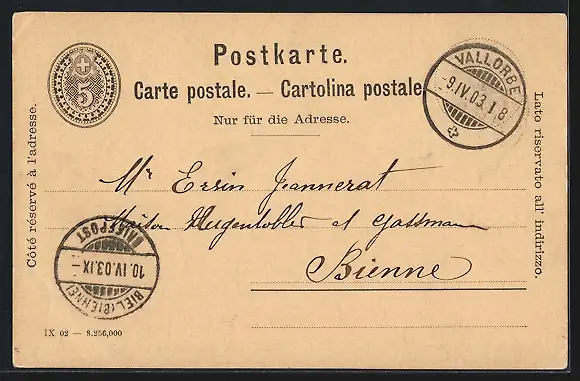 Postkarte.
Carte postale. — Cartolina postale.
Nur für die Adresse.
Côté réservé à l'adresse.
Lato riservato all' indirizzo.
5
VALLORBE
-9.IV.03.1 8
Mr Ersin Jeannerat
Maison Hugentobler et Gassmann
Bienne
BRIEFPOST
10.IV.03.IX-
BIEL (BIENNE)
IX 02 — 8.256,000